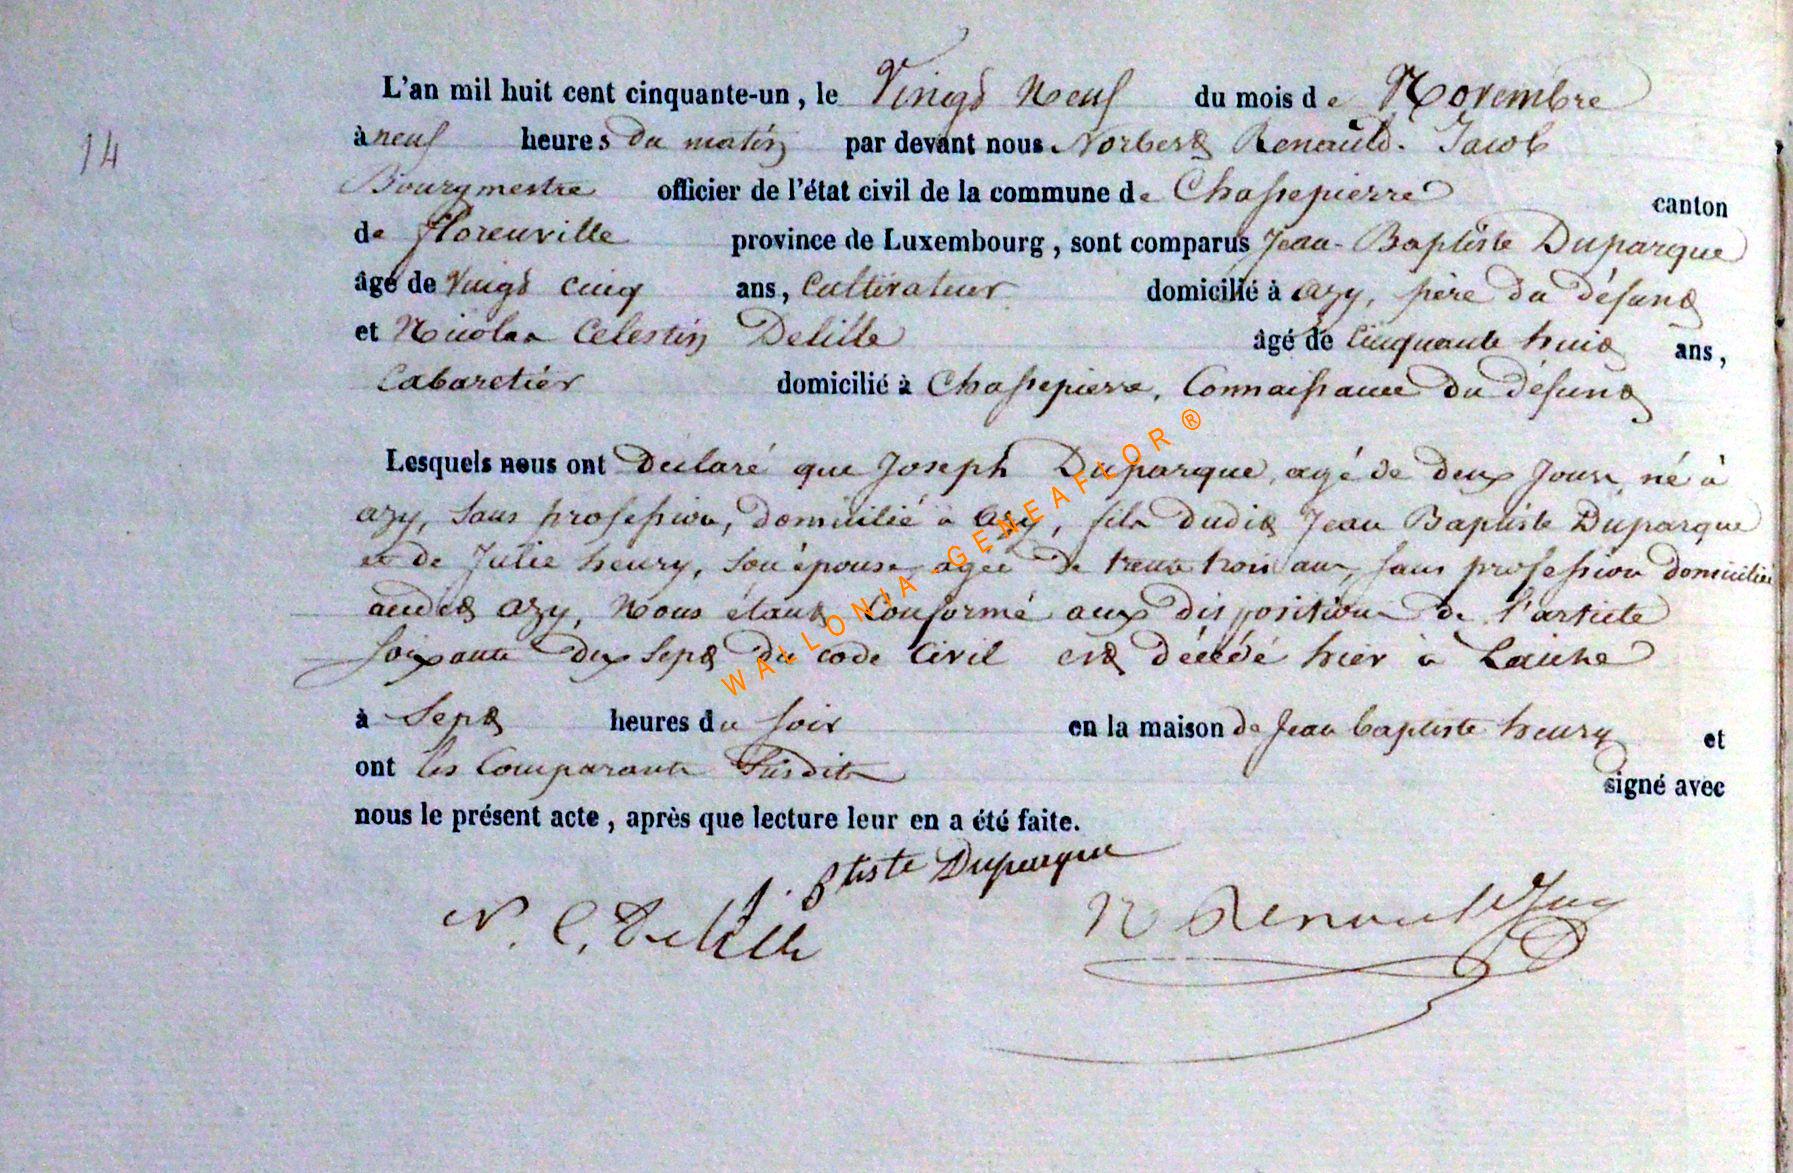 14
L'an mil huit cent cinquante-un, le Vingt Neuf du mois de Novembre
à neuf heures du matin par devant nous Norbert Renauld. Jacob
Bourgmestre officier de l'état civil de la commune de Chassepierre canton
de florenville province de Luxembourg, sont comparus Jean-Baptiste Duparque
âgé de Vingt cinq ans, Cultivateur domicilié à azy, père du défunt
et Nicolas Celestin Delille âgé de Cinquante huit ans,
Cabaretier domicilié à Chassepierre, Connaissance du défunt
Lesquels nous ont Déclaré que Joseph Duparque, agé de deux Jours, né à
azy, sans profession, domicilié à azy, fils dudit Jean Baptiste Duparque
et de Julie henry, son épouse agée de trente trois ans, sans profession domiciliée
audit azy, Nous étant Conformé aux dispositions de l'article
soixante dix sept du code Civil est décédé hier à Laiche
à Sept heures du soir en la maison de Jean baptiste henry et
ont les Comparants Susdits signé avec
nous le présent acte, après que lecture leur en a été faite.
J. Btiste Duparque
N. C. Delille
N Renauld Jac
WALLONIA-GENEAFLOR ®